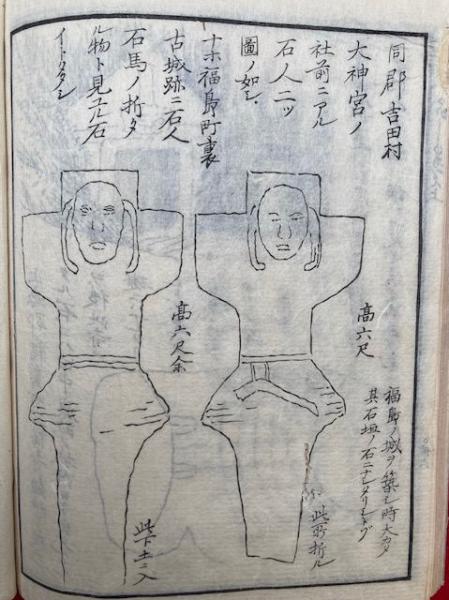 同郡吉田村
大神宮ノ
社前ニアル
石人二ツ
圖ノ如シ
ナホ福島町裏
古城跡ニ石人
石馬ノ折タ
ル物ト見ユル石
高六尺
福島ノ城ヲ築シ時大カタ
其石垣ノ石ニナシタリシトゾ
此所折ル
高六尺余
此下土ニ入